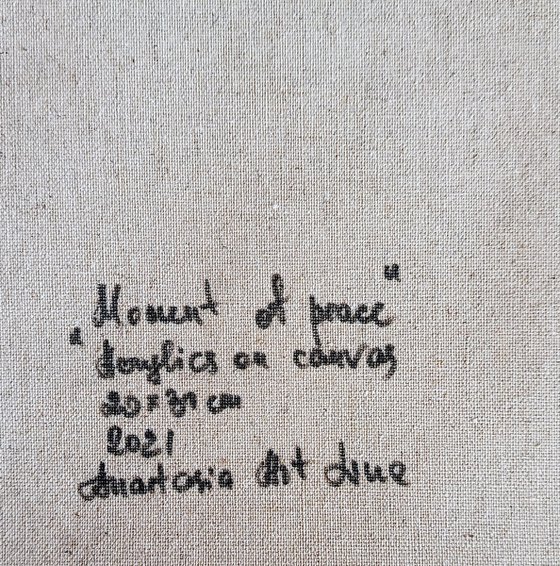 "Moment of peace"
Acrylics on canvas
cm
2021
Anastasia Art Line